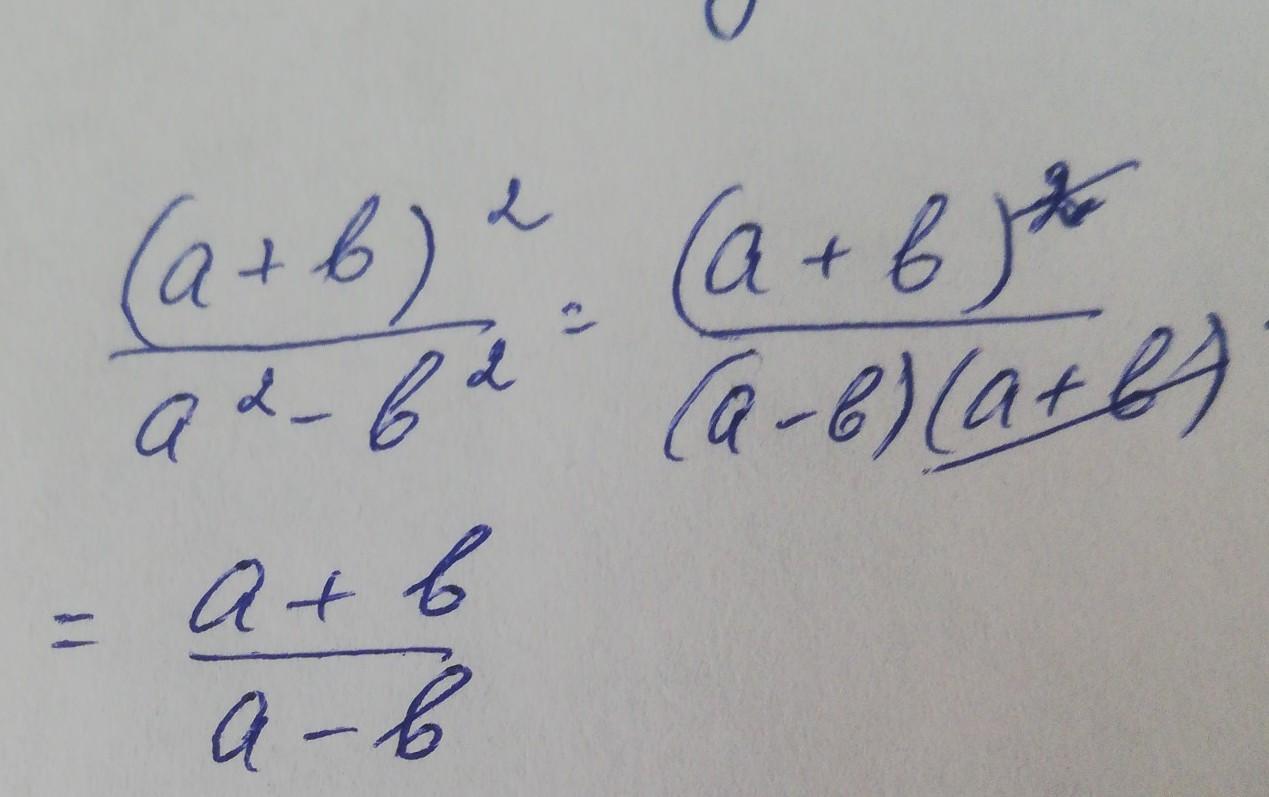 (a+b)²/(a²-b²) = (a+b)²/((a-b)(a+b))
= (a+b)/(a-b)